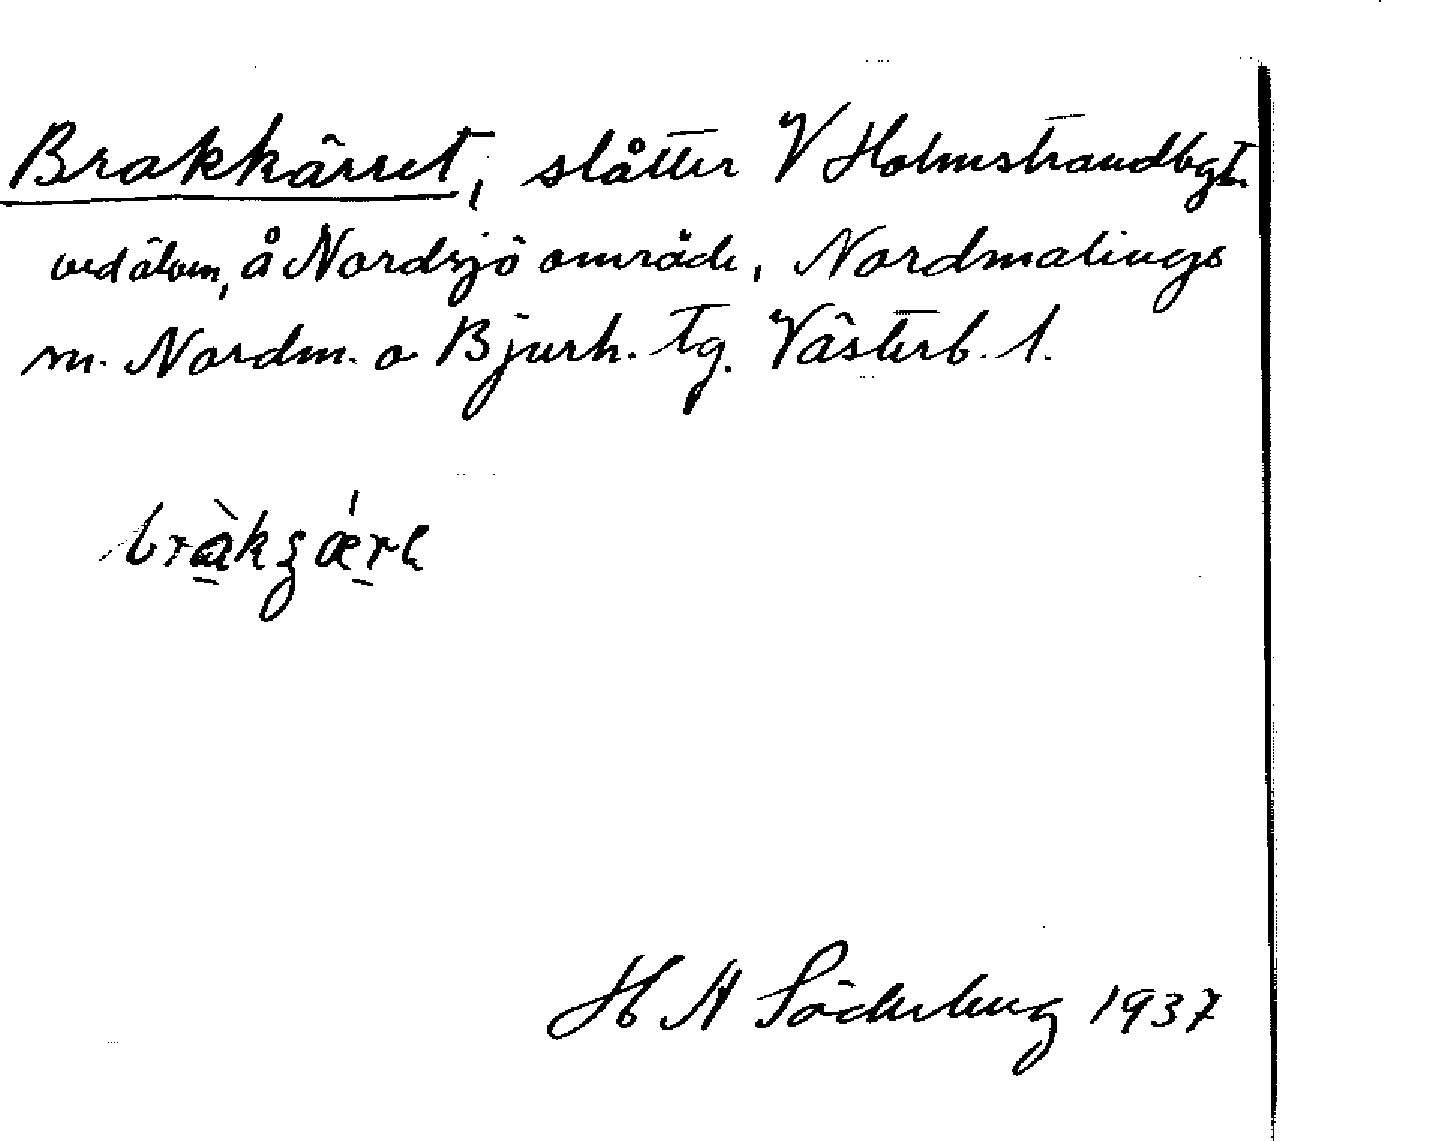 Brakkärret, slåtter V Holmstrandbgt.
ved älven, å Nordsjö område, Nordmalings
sn. Nordm. o Bjurh. tg. Västerb. l.
H A Söderberg 1937